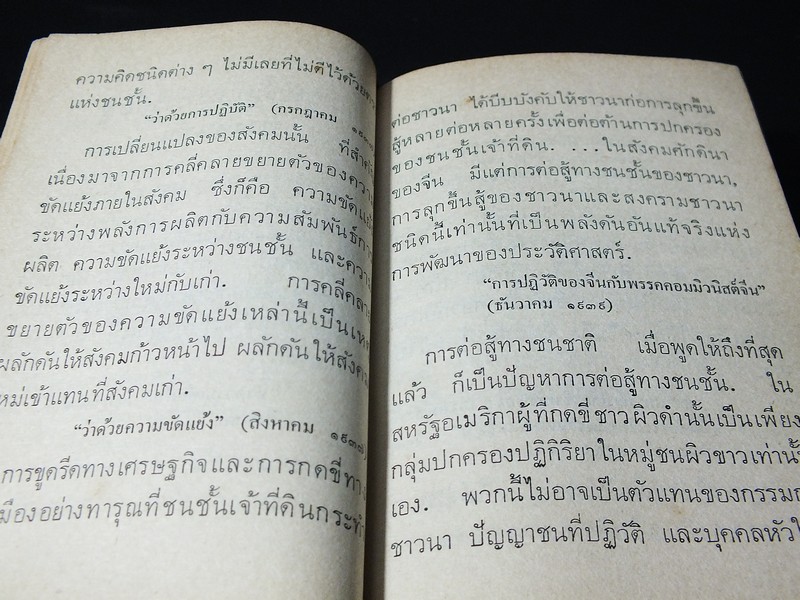 ความคิดชนิดต่าง ๆ ไม่มีเลยที่ไม่ตีไว้ด้วย
แห่งชนชั้น.
“ว่าด้วยการปฏิบัติ” (กรกฎาคม ๑๙๓๗)
การเปลี่ยนแปลงของสังคมนั้น ที่สำคัญ
เนื่องมาจากการคลี่คลายขยายตัวของความ
ขัดแย้งภายในสังคม ซึ่งก็คือ ความขัดแย้ง
ระหว่างพลังการผลิตกับความสัมพันธ์การ
ผลิต ความขัดแย้งระหว่างชนชั้น และความ
ขัดแย้งระหว่างใหม่กับเก่า. การคลี่คลาย
ขยายตัวของความขัดแย้งเหล่านี้เป็นเหตุ
ผลักดันให้สังคมก้าวหน้าไป ผลักดันให้สังคม
ใหม่เข้าแทนที่สังคมเก่า.
“ว่าด้วยความขัดแย้ง” (สิงหาคม ๑๙๓๗)
การขูดรีดทางเศรษฐกิจและการกดขี่ทาง
เมืองอย่างทารุณที่ชนชั้นเจ้าที่ดินกระทำ
ต่อชาวนา ได้บีบบังคับให้ชาวนาก่อการลุกขึ้น
สู้หลายต่อหลายครั้งเพื่อต่อต้านการปกครอง
ของชนชั้นเจ้าที่ดิน. ...ในสังคมศักดินา
ของจีน มีแต่การต่อสู้ทางชนชั้นของชาวนา,
การลุกขึ้นสู้ของชาวนาและสงครามชาวนา
ชนิดนี้เท่านั้นที่เป็นพลังดันอันแท้จริงแห่ง
การพัฒนาของประวัติศาสตร์.
“การปฏิวัติของจีนกับพรรคคอมมิวนิสต์จีน”
(ธันวาคม ๑๙๓๙)
การต่อสู้ทางชนชาติ เมื่อพูดให้ถึงที่สุด
แล้ว ก็เป็นปัญหาการต่อสู้ทางชนชั้น. ใน
สหรัฐอเมริกาผู้ที่กดขี่ชาวผิวดำนั้นเป็นเพียง
กลุ่มปกครองปฏิกิริยาในหมู่ชนผิวขาวเท่านั้น
เอง. พวกนี้ไม่อาจเป็นตัวแทนของกรรมกร
ชาวนา ปัญญาชนที่ปฏิวัติ และบุคคลหัว